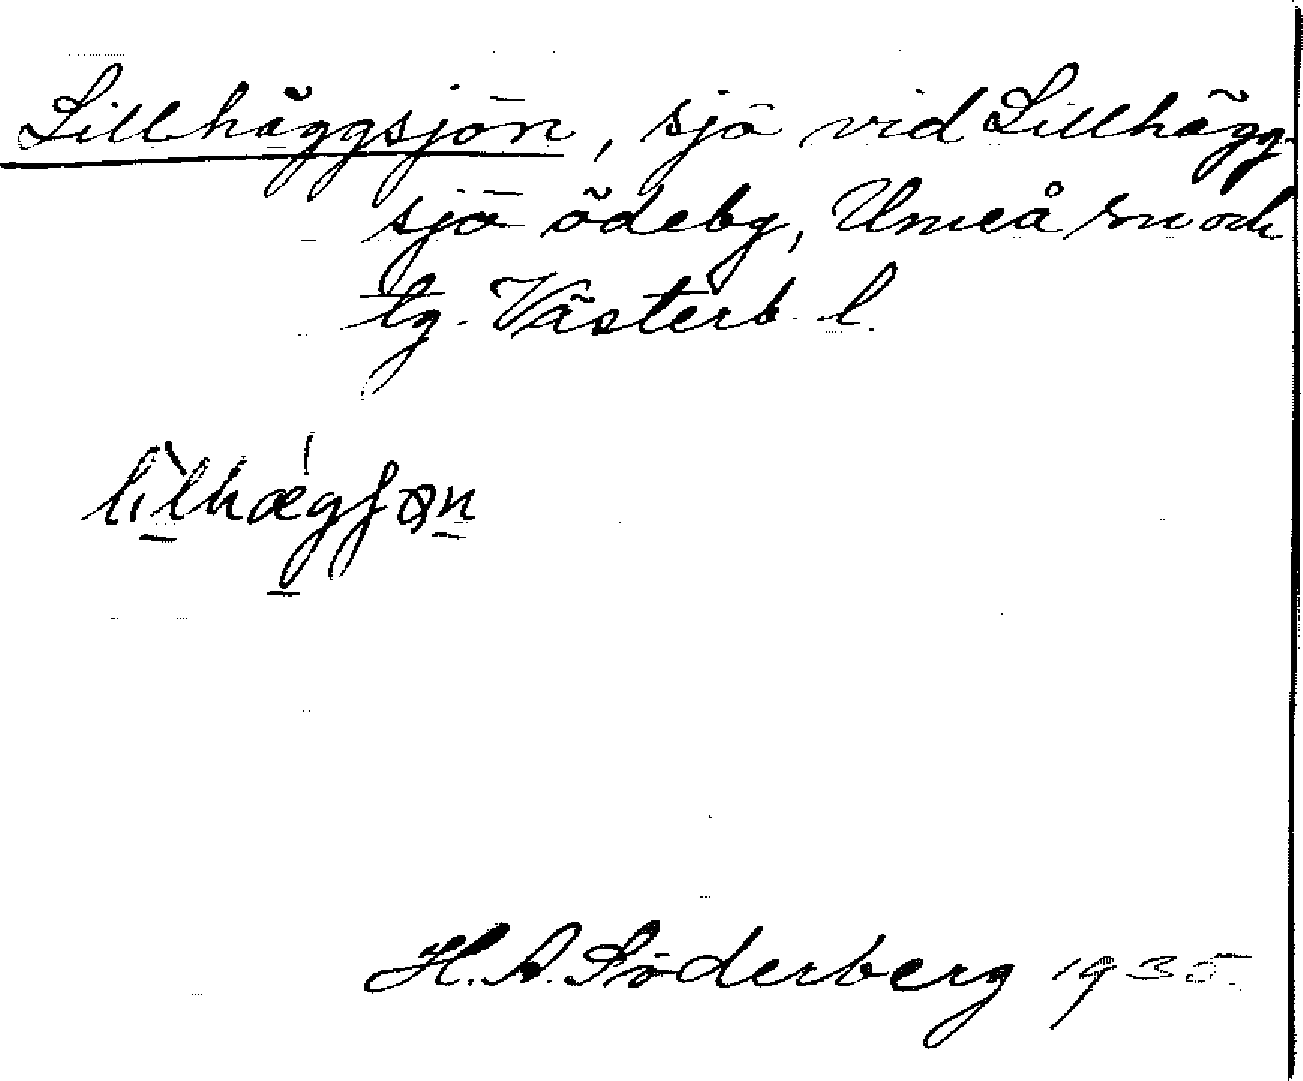 Lillhäggsjön, sjö vid Lillhägg-
sjö ödeby, Umeå sn och
tg. Västerb. l.
lìlhǽgʃøn
H. A. Söderberg 1935.